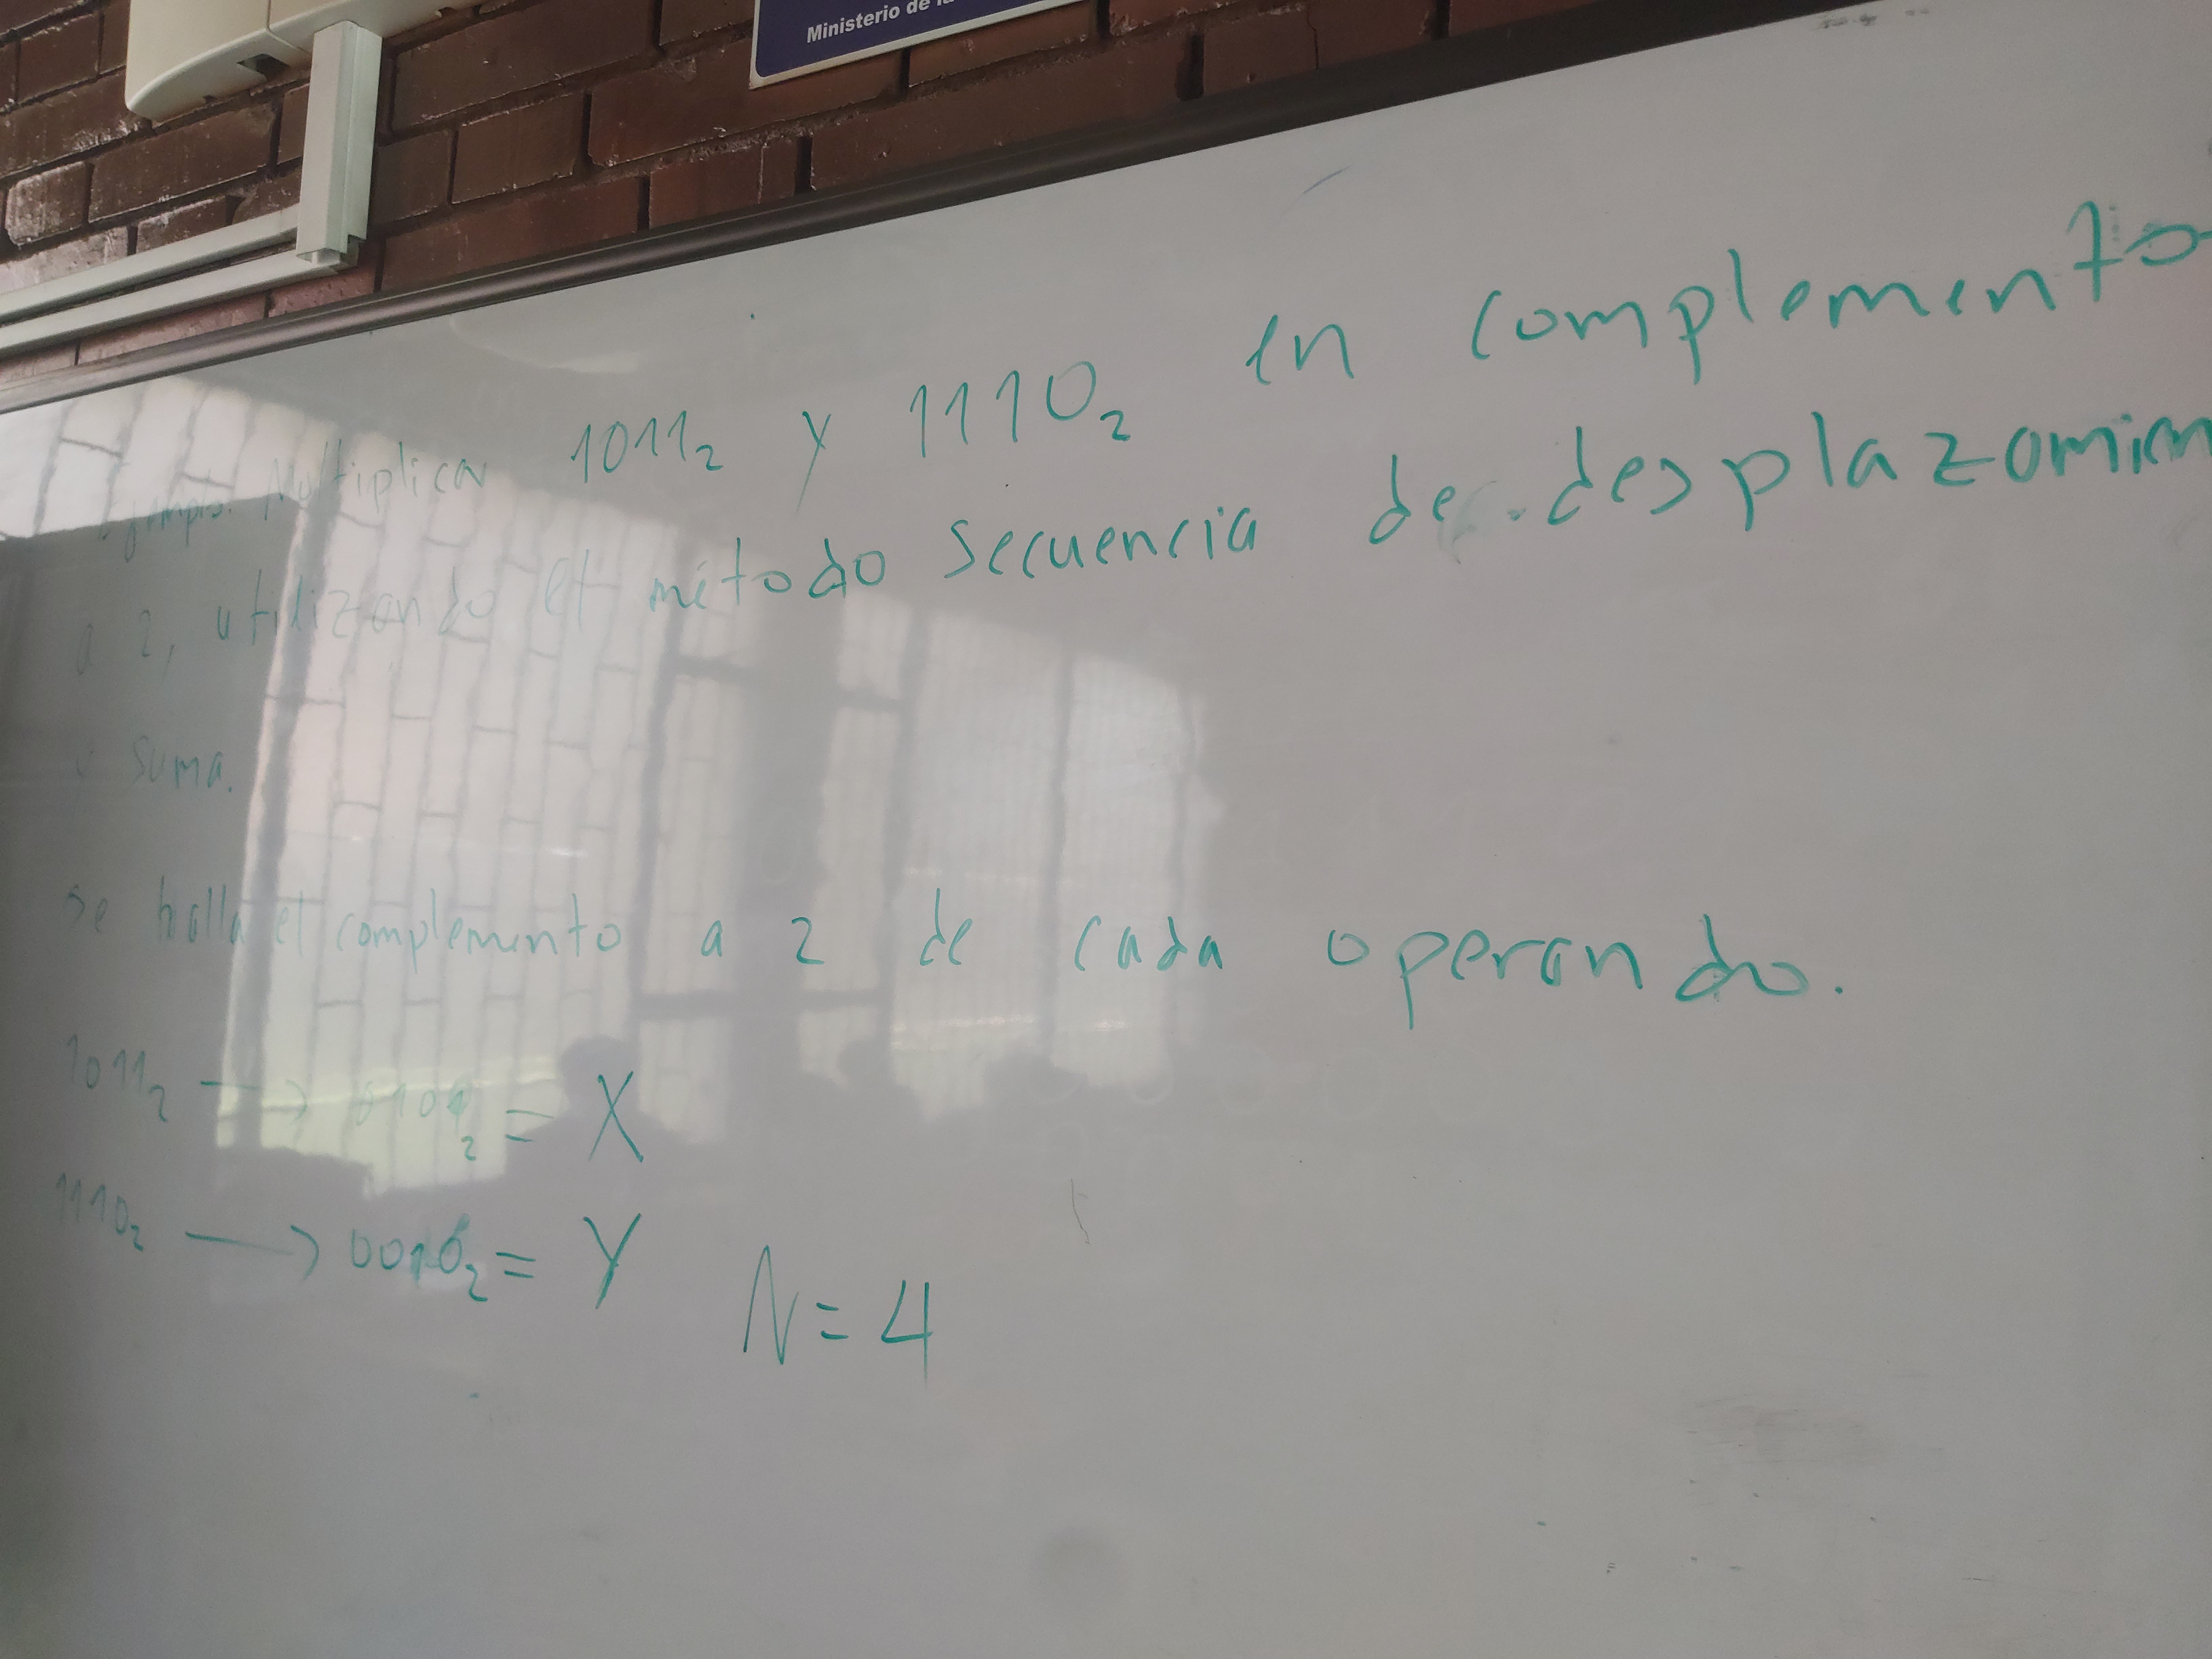 Ministerio de la
Ejemplo. Multiplicar 1011₂ y 1110₂ en complemento
a 2, utilizando el método secuencia de desplazamien
y suma.
Se halla el complemento a 2 de cada operando.
1011₂ → 0101₂ = X
1110₂ → 0010₂ = Y N = 4